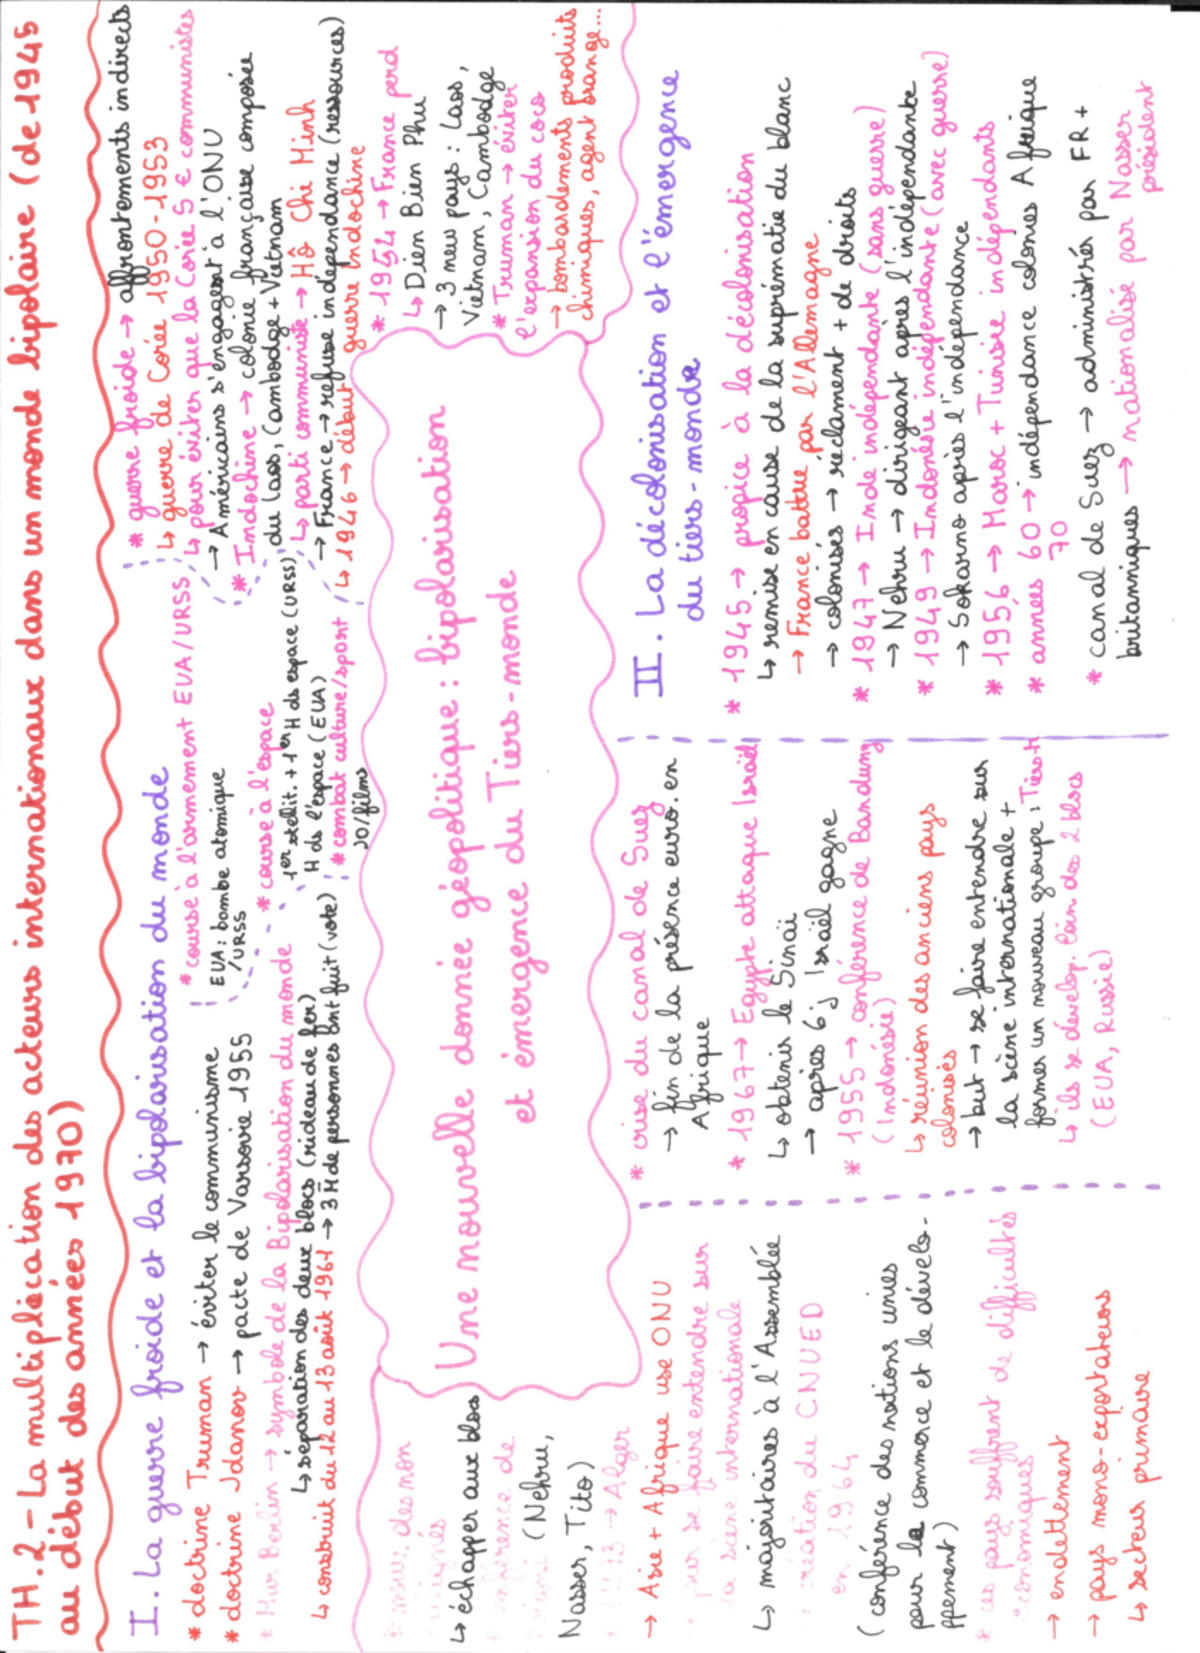 TH.2 - La multiplication des acteurs internationaux dans un monde bipolaire (de 1945
au début des années 1970)
I. La guerre froide et la bipolarisation du monde
* doctrine Truman → éviter le communisme
* doctrine Jdanov → pacte de Varsovie 1955
* Mur Berlin → symbole de la Bipolarisation du monde
↳ séparation des deux blocs (rideau de fer)
↳ construit du 12 au 13 août 1961 → 3M de personnes ont fuit (vote)
* course à l'armement EUA/URSS
EUA : bombe atomique
/URSS
* course à l'espace
1er stellit. + 1er H ds espace (URSS)
H ds l'espace (EUA)
* combat culture/sport
JO/films
* guerre froide → affrontements indirects
↳ guerre de Corée 1950-1953
↳ pour éviter que la Corée S € communistes
→ Américains s'engagent à l'ONU
* Indochine → colonie française composée
du Laos, Cambodge + Vietnam
↳ parti communiste → Hô Chi Minh
→ France → refuse indépendance (ressources)
↳ 1946 → début guerre Indochine
* 1954 → France perd
↳ Dien Bien Phu
→ 3 new pays : Laos,
Vietnam, Cambodge
* Truman → éviter
l'expansion du coco
→ bombardements produits
chimiques, agent orange...
Une nouvelle donnée géopolitique : bipolarisation
et émergence du Tiers-monde
II. La décolonisation et l'émergence
du tiers-monde
* 1945 → propice à la décolonisation
↳ remise en cause de la suprématie du blanc
→ France battue par l'Allemagne
→ colonisés → réclament + de droits
* 1947 → Inde indépendante (sans guerre)
→ Nehru → dirigeant après l'indépendante
* 1949 → Indonésie indépendante (avec guerre)
→ Sokarno après l'indépendance
* 1956 → Maroc + Tunisie indépendants
* années 60 → indépendance colonies Afrique
70
* canal de Suez → administrés par FR +
britanniques → nationalisé par Nasser
président
* crise du canal de Suez
→ fin de la présence euro. en
Afrique
* 1967 → Egypte attaque Israël
↳ obtenir le Sinaï
→ après 6j Israël gagne
* 1955 → conférence de Bandung
(Indonésie)
↳ réunion des anciens pays
colonisés
→ but → se faire entendre sur
la scène internationale +
former un nouveau groupe : Tiers
↳ ils se dévelop. loin des 2 blocs
(EUA, Russie)
* mouv. des non
↳ échapper aux blocs
(Nehru,
Nasser, Tito)
1973 → Alger
→ Asie + Afrique use ONU
pur se faire entendre sur
la scène internationale
↳ majoritaires à l'Assemblée
création du CNUED
en 1964
(conférence des nations unies
pour le commerce et le dévelo-
ppement)
* ces pays souffrent de difficultés
économiques
→ endettement
→ pays mono-exportateurs
↳ secteur primaire